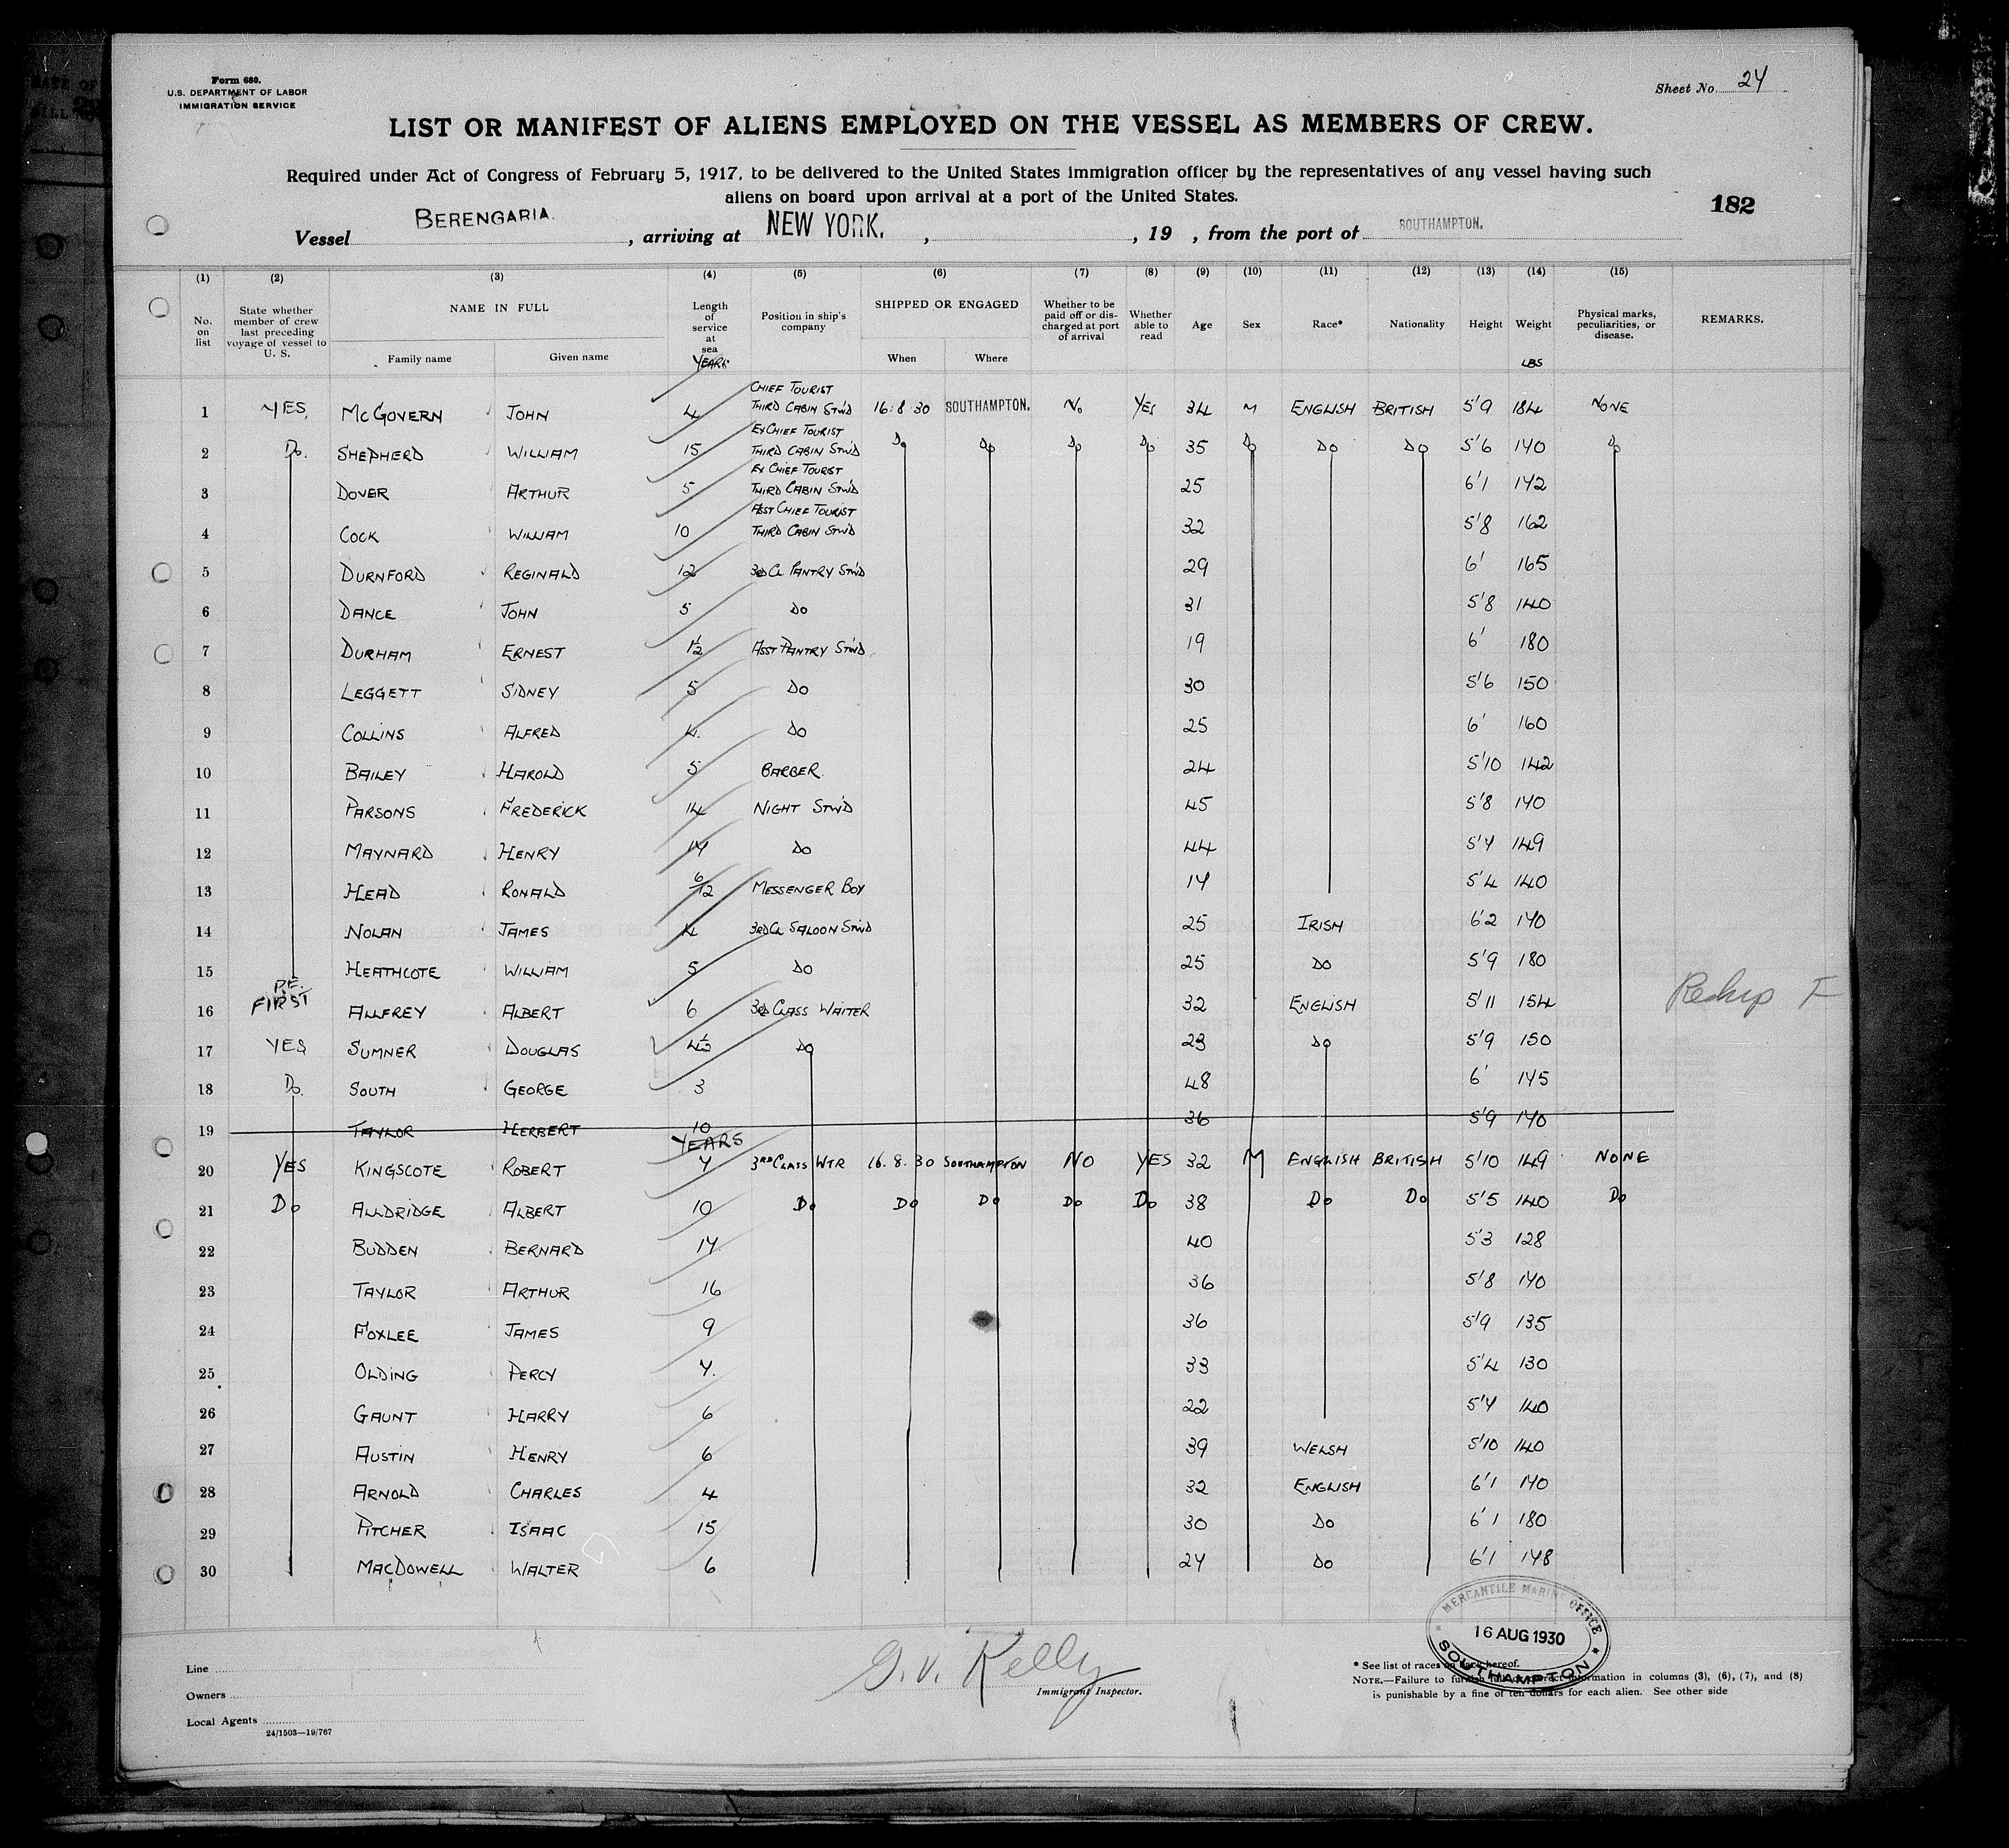 Form 680.
U.S. DEPARTMENT OF LABOR
IMMIGRATION SERVICE
Sheet No. 27
LIST OR MANIFEST OF ALIENS EMPLOYED ON THE VESSEL AS MEMBERS OF CREW.
Required under Act of Congress of February 5, 1917, to be delivered to the United States immigration officer by the representatives of any vessel having such
aliens on board upon arrival at a port of the United States.
182
Vessel BERENGARIA. , arriving at NEW YORK. , , 19 , from the port of SOUTHAMPTON.
(1) (2) (3) (4) (5) (6) (7) (8) (9) (10) (11) (12) (13) (14) (15)
No. on list State whether member of crew last preceding voyage of vessel to U. S. NAME IN FULL Family name Given name Length of service at sea YEARS Position in ship's company SHIPPED OR ENGAGED When Where Whether to be paid off or discharged at port of arrival Whether able to read Age Sex Race* Nationality Height Weight LBS Physical marks, peculiarities, or disease. REMARKS.
1 YES, McGOVERN JOHN 4 CHIEF TOURIST THIRD CABIN STWD 16.8.30 SOUTHAMPTON. No YES 34 M ENGLISH BRITISH 5'9 184 NONE
2 Do. SHEPHERD WILLIAM 15 EX CHIEF TOURIST THIRD CABIN STWD Do Do Do Do 35 Do Do Do 5'6 140 Do
3 DOVER ARTHUR 5 EX CHIEF TOURIST THIRD CABIN STWD 25 6'1 172
4 COCK WILLIAM 10 ASST CHIEF TOURIST THIRD CABIN STWD 32 5'8 162
5 DURNFORD REGINALD 12 3RD CL PANTRY STWD 29 6' 165
6 DANCE JOHN 5 Do 31 5'8 140
7 DURHAM ERNEST 1½ ASST PANTRY STWD 19 6' 180
8 LEGGETT SIDNEY 5 Do 30 5'6 150
9 COLLINS ALFRED 4. Do 25 6' 160
10 BAILEY HAROLD 5 BARBER. 24 5'10 142
11 PARSONS FREDERICK 14 NIGHT STWD 45 5'8 170
12 MAYNARD HENRY 17 Do 44 5'7 149
13 HEAD RONALD 6/12 MESSENGER BOY 17 5'4 140
14 NOLAN JAMES 4 3RD CL SALOON STWD 25 IRISH 6'2 170
15 HEATHCOTE WILLIAM 5 Do 25 Do 5'9 180
16 P.E. FIRST ALLFREY ALBERT 6 3RD CLASS WAITER 32 ENGLISH 5'11 154 Reship F
17 YES SUMNER DOUGLAS 4½ Do 23 Do 5'9 150
18 Do. SOUTH GEORGE 3 48 6' 175
19 TAYLOR HERBERT 10 36 5'9 170
YEARS
20 YES KINGSCOTE ROBERT 7 3RD CLASS WTR 16.8.30 SOUTHAMPTON NO YES 32 M ENGLISH BRITISH 5'10 149 NONE
21 Do ALLDRIDGE ALBERT 10 Do Do Do Do Do 38 Do Do 5'5 140 Do
22 BUDDEN BERNARD 17. 40 5'3 128
23 TAYLOR ARTHUR 16 36 5'8 170
24 FOXLEE JAMES 9 36 5'9 135
25 OLDING PERCY 7. 33 5'4 130
26 GAUNT HARRY 6 22 5'7 140
27 AUSTIN HENRY 6 39 WELSH 5'10 140
28 ARNOLD CHARLES 4 32 ENGLISH 6'1 170
29 PITCHER ISAAC 15 30 Do 6'1 180
30 MACDOWELL WALTER 6 27 Do 6'1 178
MERCANTILE MARINE OFFICE
16 AUG 1930
SOUTHAMPTON
Line
Owners
Local Agents
24/1503—19/767
G. V. Kelly
Immigrant Inspector.
* See list of races on back hereof.
NOTE.—Failure to furnish full or correct information in columns (3), (6), (7), and (8)
is punishable by a fine of ten dollars for each alien. See other side